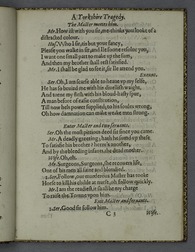 A Yorkshire Tragedy.
The Maister meetes him.
Ma. How ist with you sir, me-thinks you looke of a
distracted colour.
Hus. Who I sir, its but your fancy,
Please you walke in sir, and Ile soone resolve you,
I want one small part to make up the sum,
And then my brother shall rest satisfied.
Ma. I shall be glad to see it, sir Ile attend you.
Exeunt.
Ser. Oh, I am scarse able to heave up my selfe,
He has so bruizd me with his divelish waight,
And torne my flesh with his bloud-hasty spur,
A man before of easie constitution,
Till now hels power supplied, to his soules wrong,
Oh how damnation can make weake men strong.
Enter Maister and two servants.
Ser. Oh the most piteous deed sir since you came
Ma. A deadly greeting, hath he somd up these
To satisfie his brother, heer's another,
And by the bleeding infants the dead mother.
Wife. Oh, oh.
Ma. Surgeons, Surgeons, she recovers life,
One of his men all faint and bloudied.
1 Ser. Follow, our murtherous Maister has tooke
Horse to kill his child at nurse, oh follow quickly.
Ma. I am the readiest, it shall be my charge
To raise the towne upon him.
Exit Maister and servants.
1 Ser. Good sir follow him.
C 3
Wife.